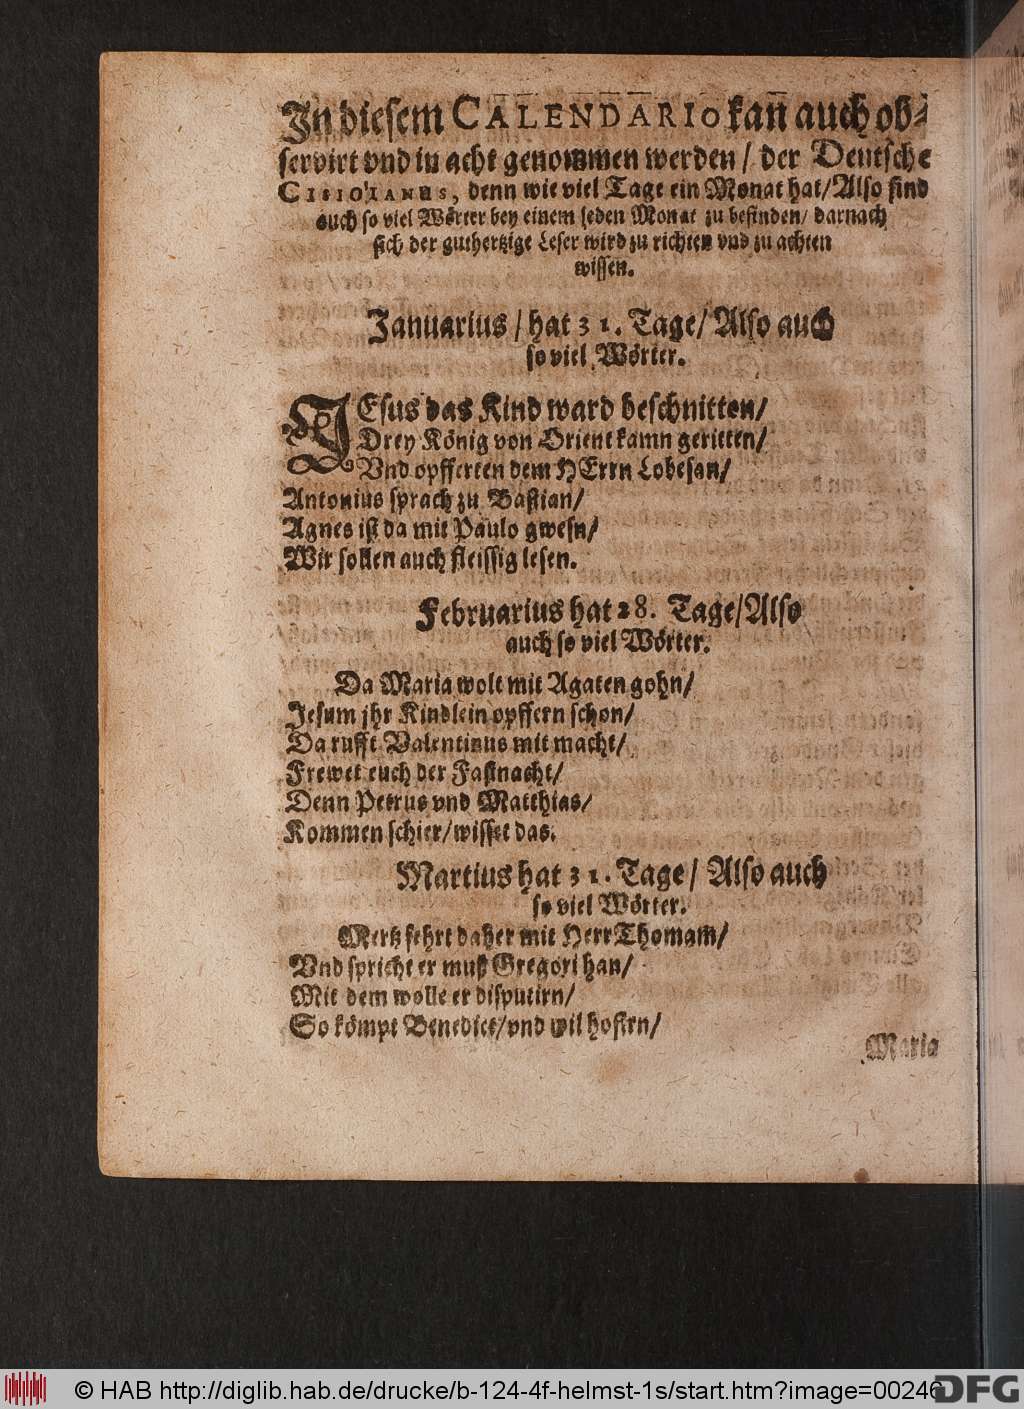 In diesem CALENDARIO kan auch ob-
servirt vnd in acht genommen werden / der Deutsche
CISIOIANUS, denn wie viel Tage ein Monat hat / Also sind
auch so viel Wörter bey einem jeden Monat zu befinden / darnach
sich der guthertzige Leser wird zu richten vnd zu achten
wissen.
Januarius / hat 31. Tage / Also auch
so viel Wörter.
JEsus das Kind ward beschnitten /
Drey König von Orient kamn geritten /
Vnd opfferten dem HErrn Lobesan /
Antonius sprach zu Bastian /
Agnes ist da mit Paulo gwesn /
Wir sollen auch fleissig lesen.
Februarius hat 28. Tage / Also
auch so viel Wörter.
Da Maria wolt mit Agaten gohn /
Jesum jhr Kindlein opffern schon /
Da rufft Valentinus mit macht /
Frewet euch der Fastnacht /
Denn Petrus vnd Matthias /
Kommen schier / wisset das.
Martius hat 31. Tage / Also auch
so viel Wörter.
Mertz fehrt daher mit Herr Thomam /
Vnd spricht er muß Gregori han /
Mit dem wolle er disputirn /
So kömpt Benedict / vnd wil hofirn /
Maria
© HAB http://diglib.hab.de/drucke/b-124-4f-helmst-1s/start.htm?image=00246
DFG